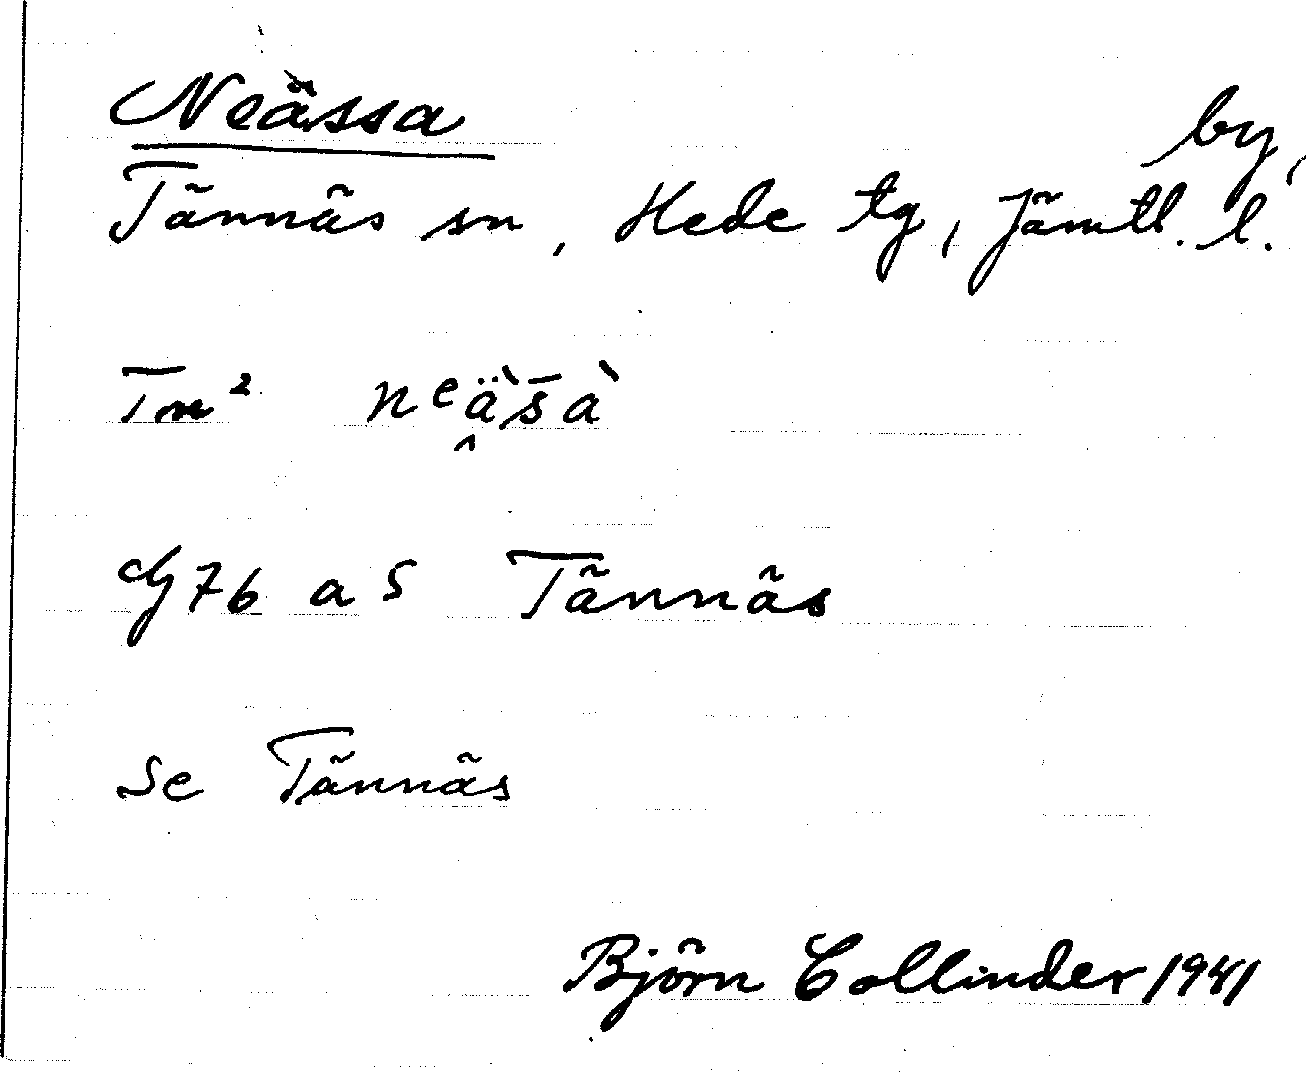 Neässa by,
Tännäs sn, Hede tg, Jämtl. l.
Tn² nᵉä̭̀s̄à
G 76 a S Tännäs
Se Tännäs
Björn Collinder 1941